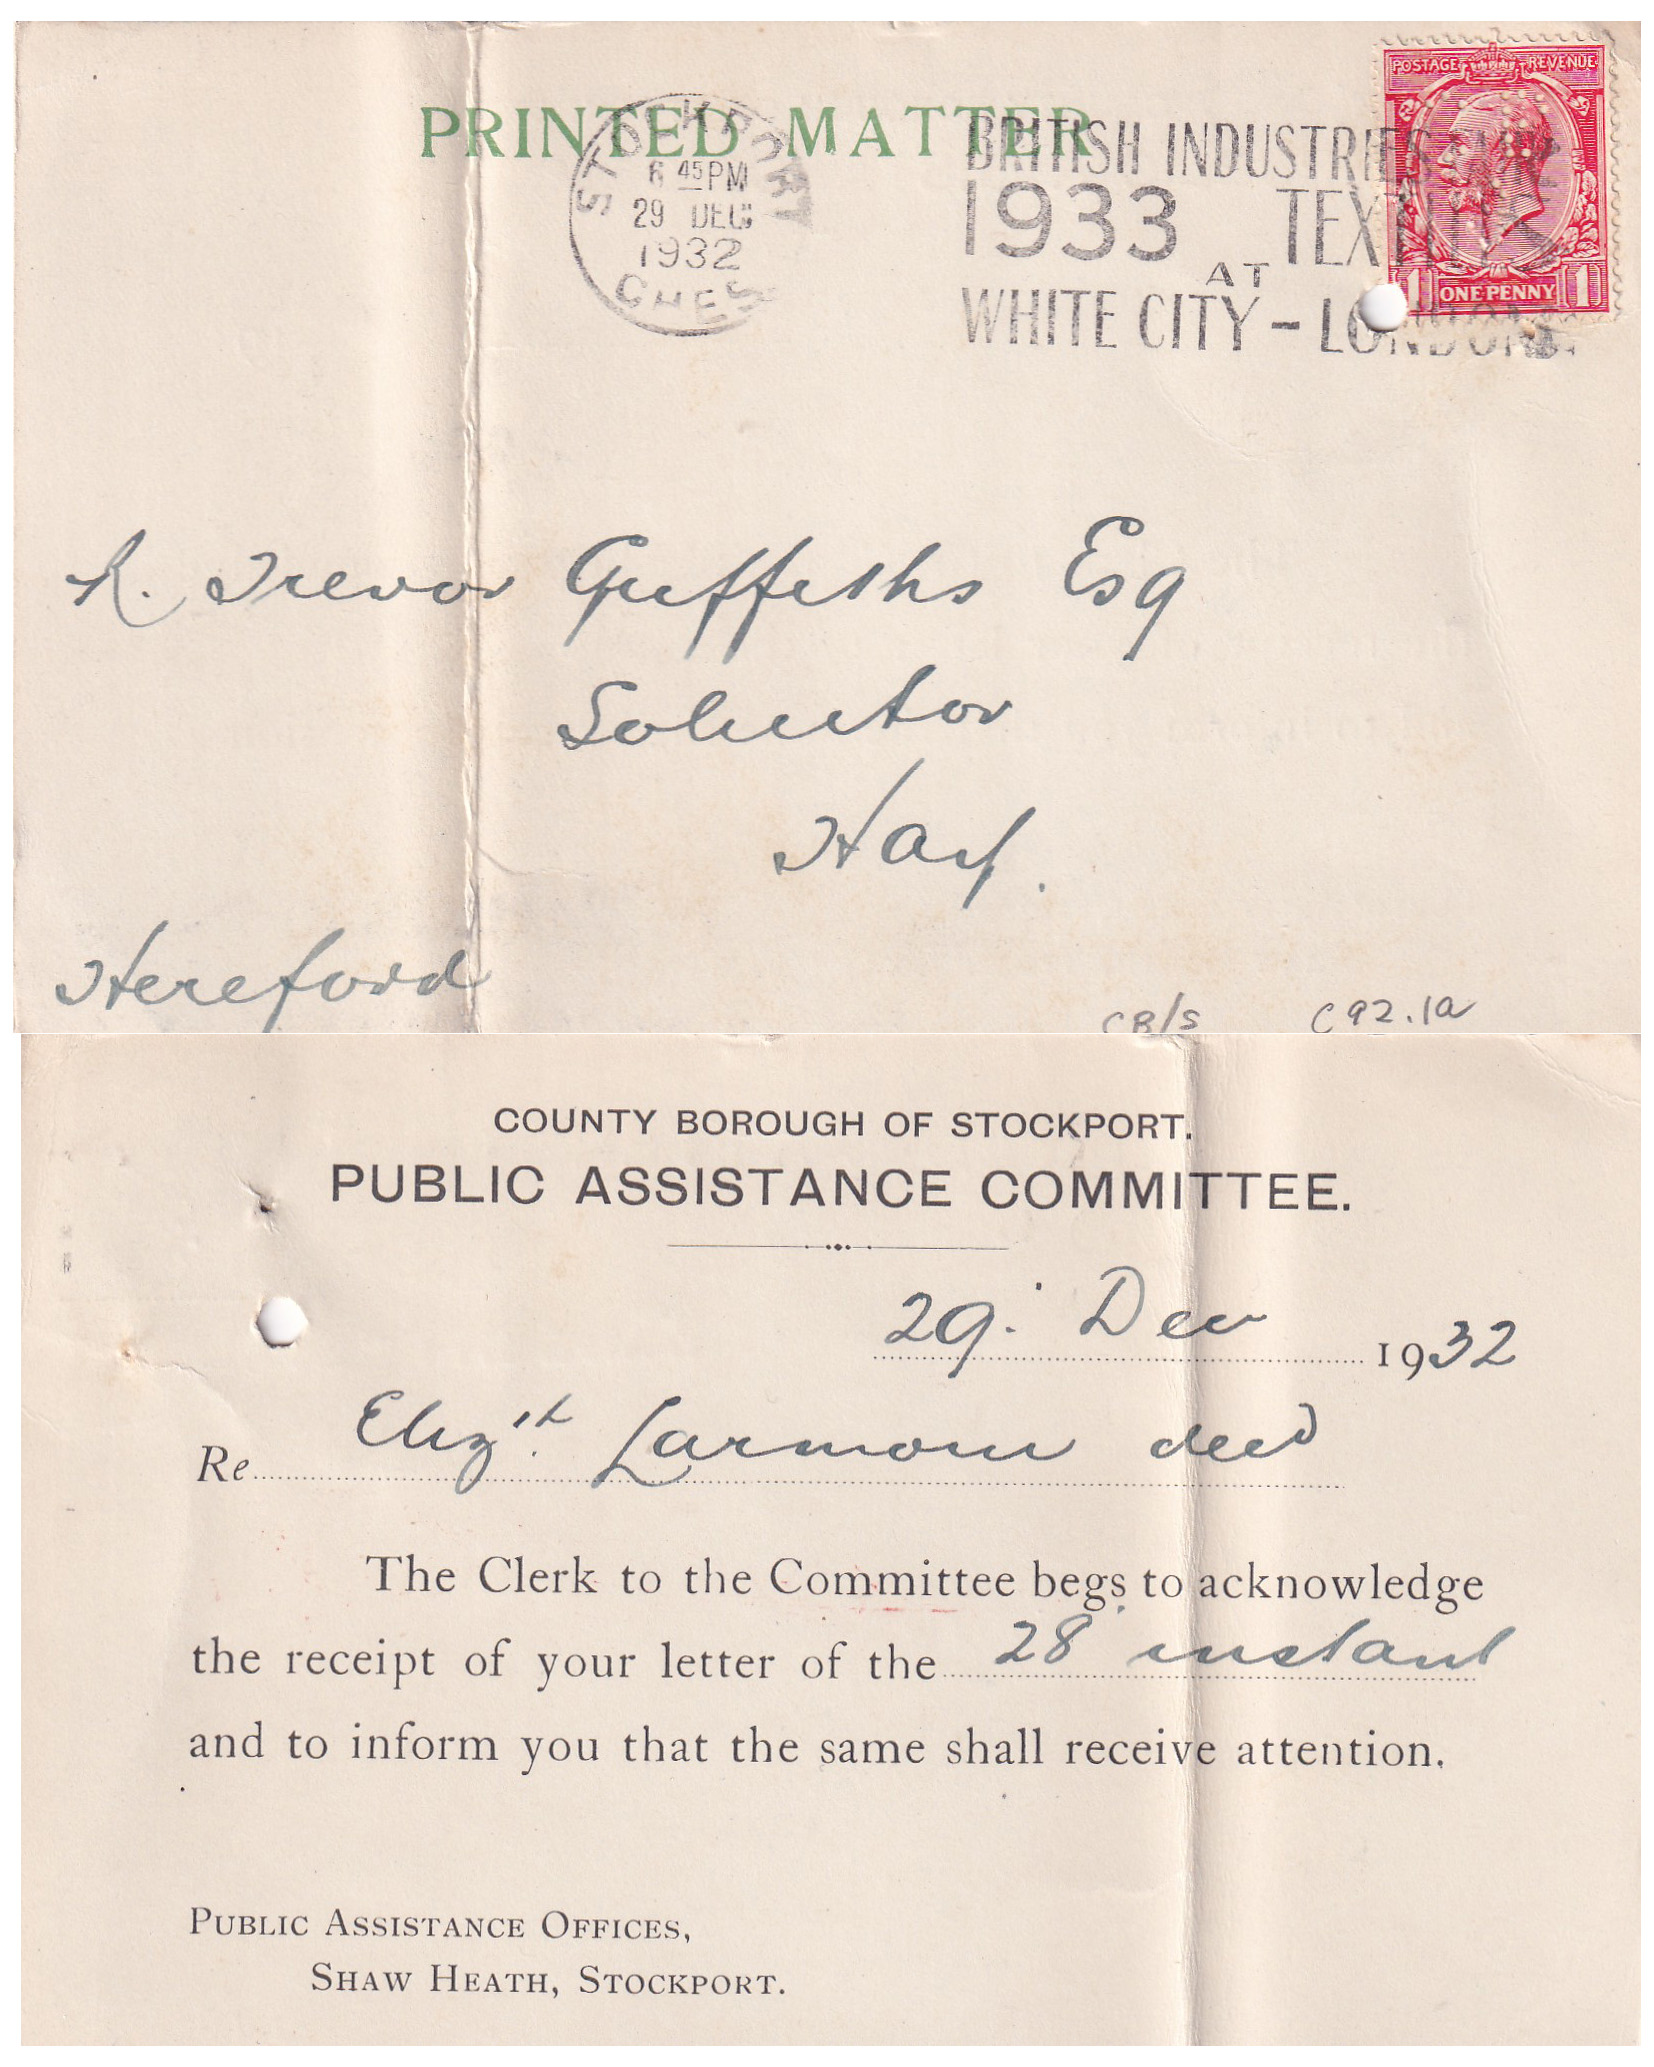 PRINTED MATTER
STOCKPORT
6 45 PM
29 DEC
1932
CHES
BRITISH INDUSTRIES
1933 TEXTILES
AT
WHITE CITY - LONDON
POSTAGE REVENUE
1 ONE PENNY 1
R. Trevor Griffiths Esq
Solicitor
Hay.
Hereford
CB/S C92.1a
COUNTY BOROUGH OF STOCKPORT.
PUBLIC ASSISTANCE COMMITTEE.
29. Dec 1932
Re Elizth. Larmour decd
The Clerk to the Committee begs to acknowledge
the receipt of your letter of the 28 instant
and to inform you that the same shall receive attention.
PUBLIC ASSISTANCE OFFICES,
SHAW HEATH, STOCKPORT.